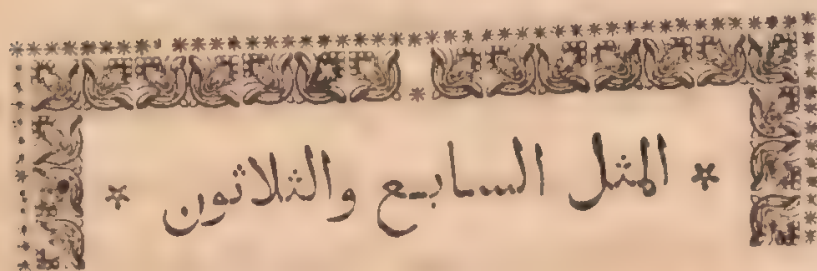 * المثل السابع والثلاثون *